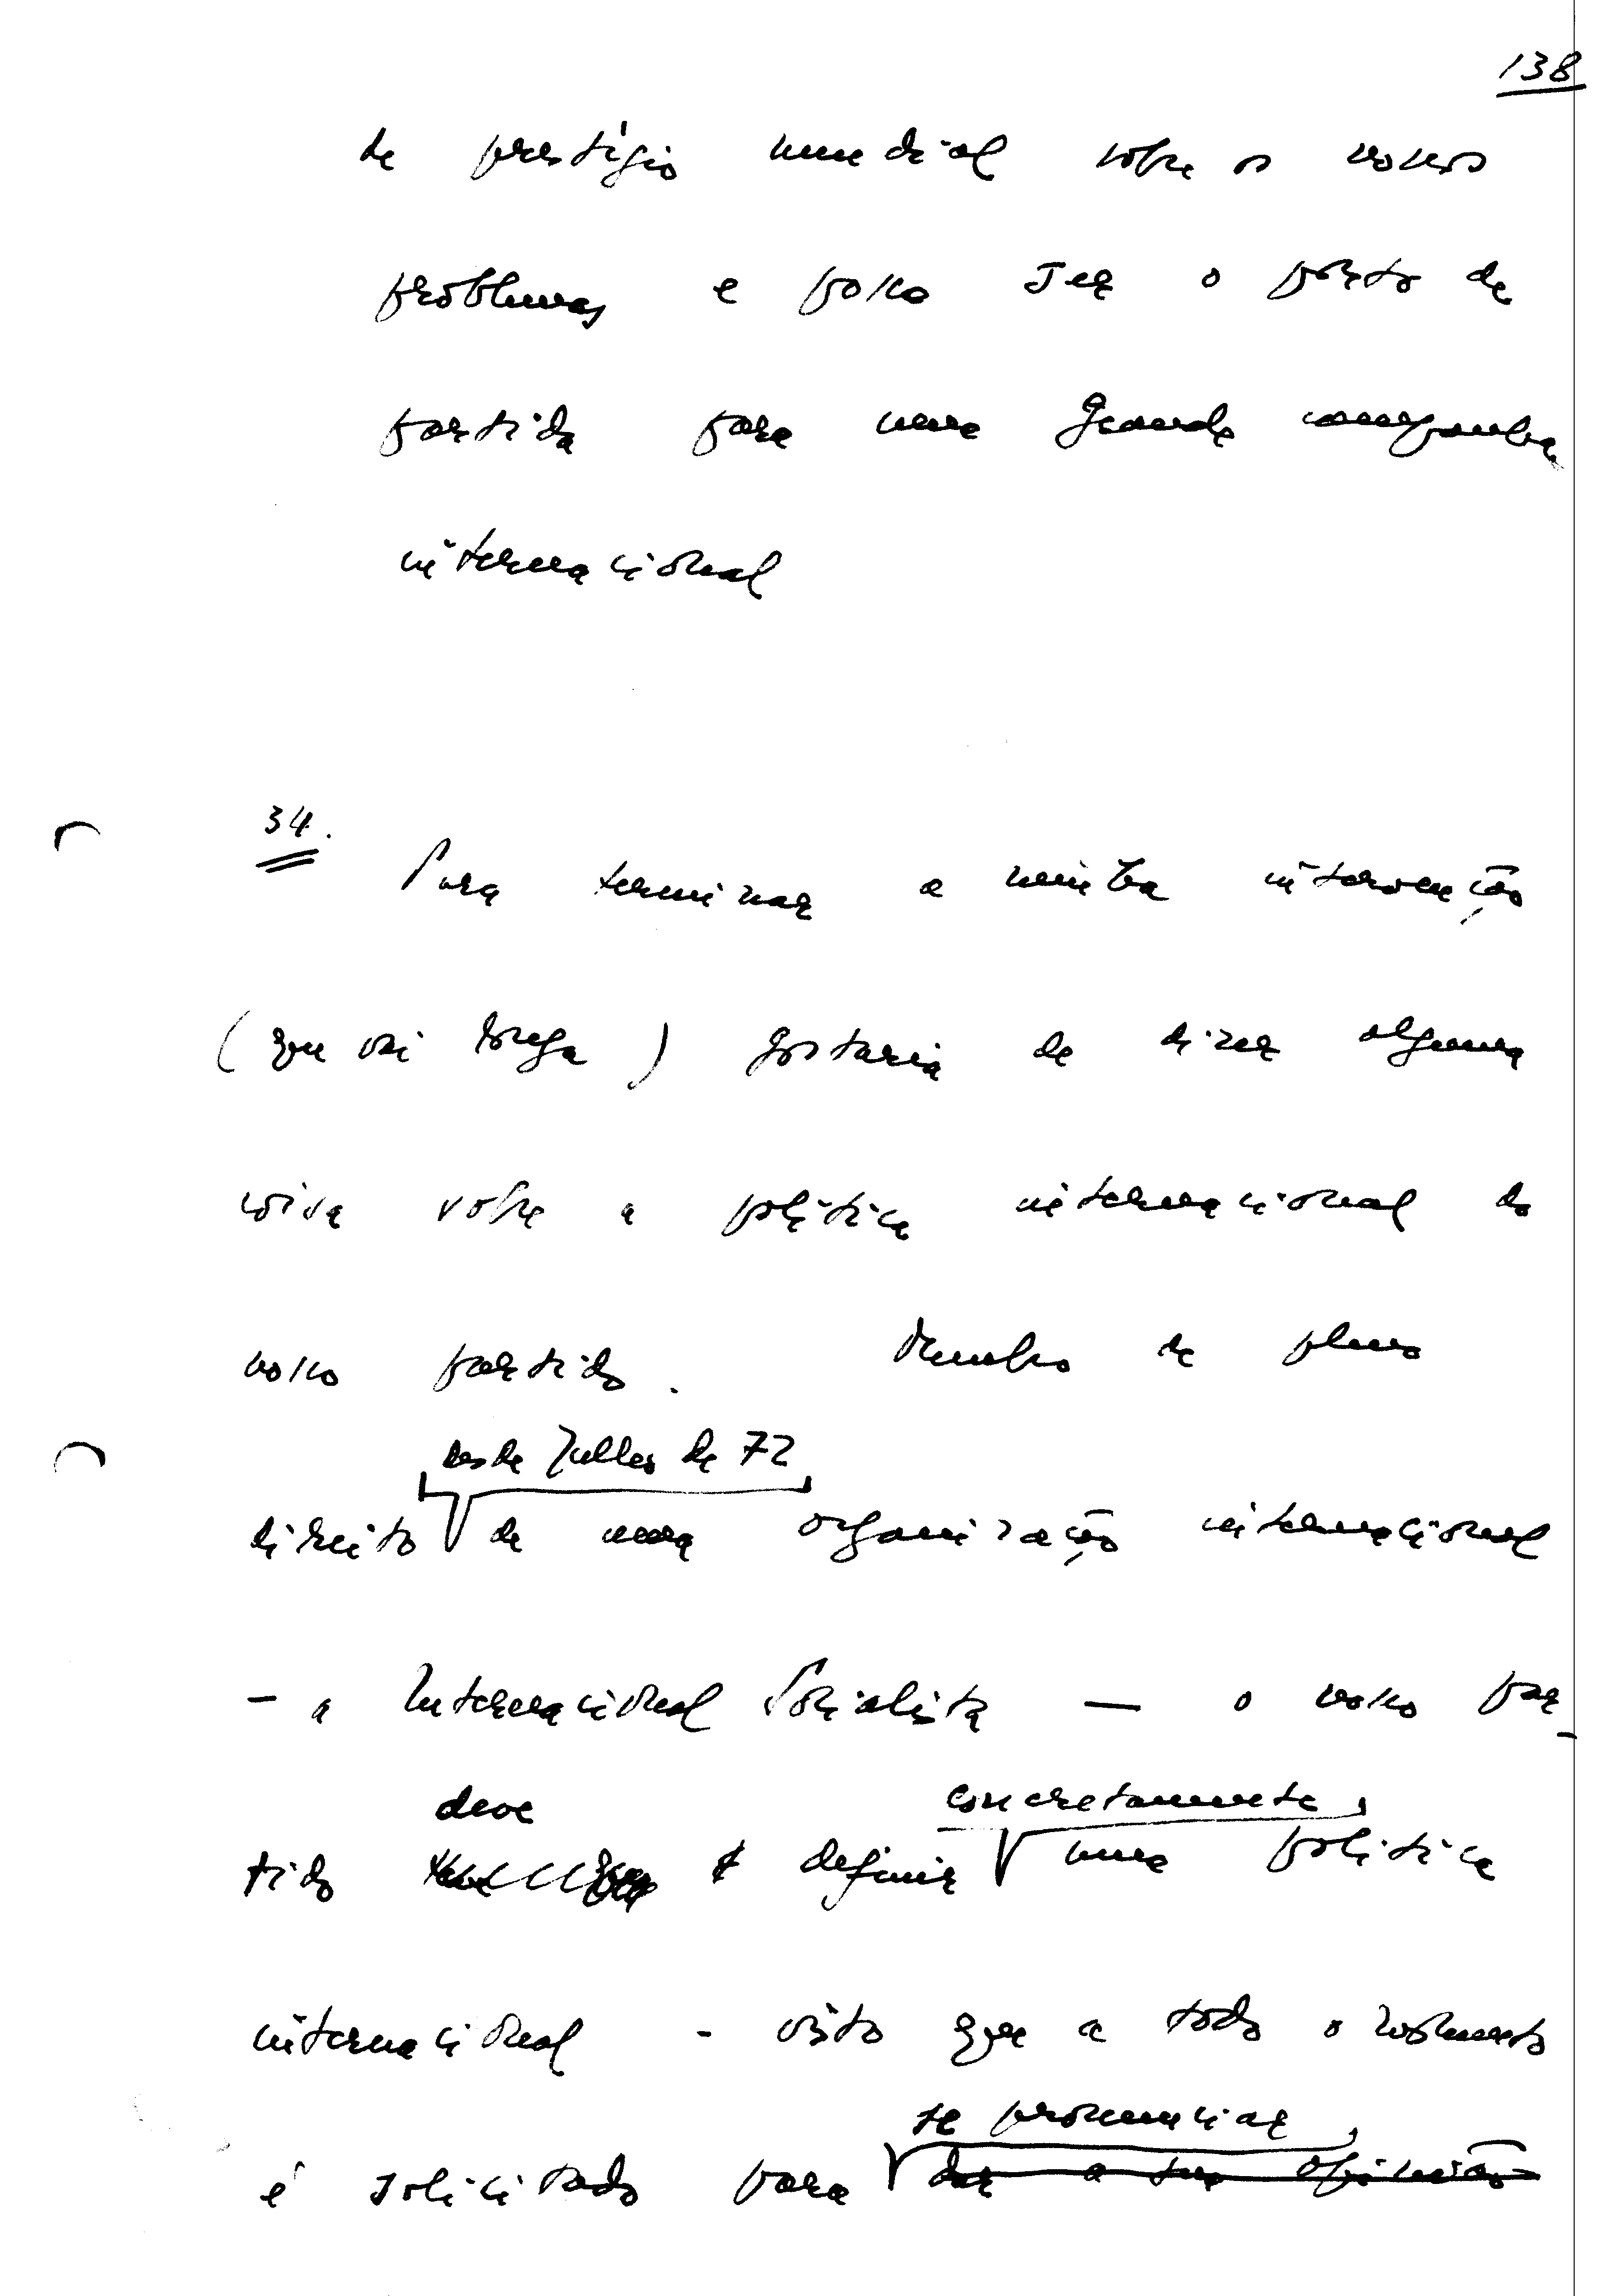 138
de prestígio mundial sobre os nossos
problemas e possa ser o ponto de
partida para uma grande campanha
internacional
34.
Para terminar a minha intervenção
(que vai longa) gostaria de dizer alguma
coisa sobre a política internacional do
nosso partido. Membro de pleno
desde Julho de 72
direito de uma organização internacional
- a Internacional Socialista — o nosso par-
deve concretamente
tido definir uma política
internacional - visto que a todo o momento
se pronunciar
é solicitado para dar a sua opinião